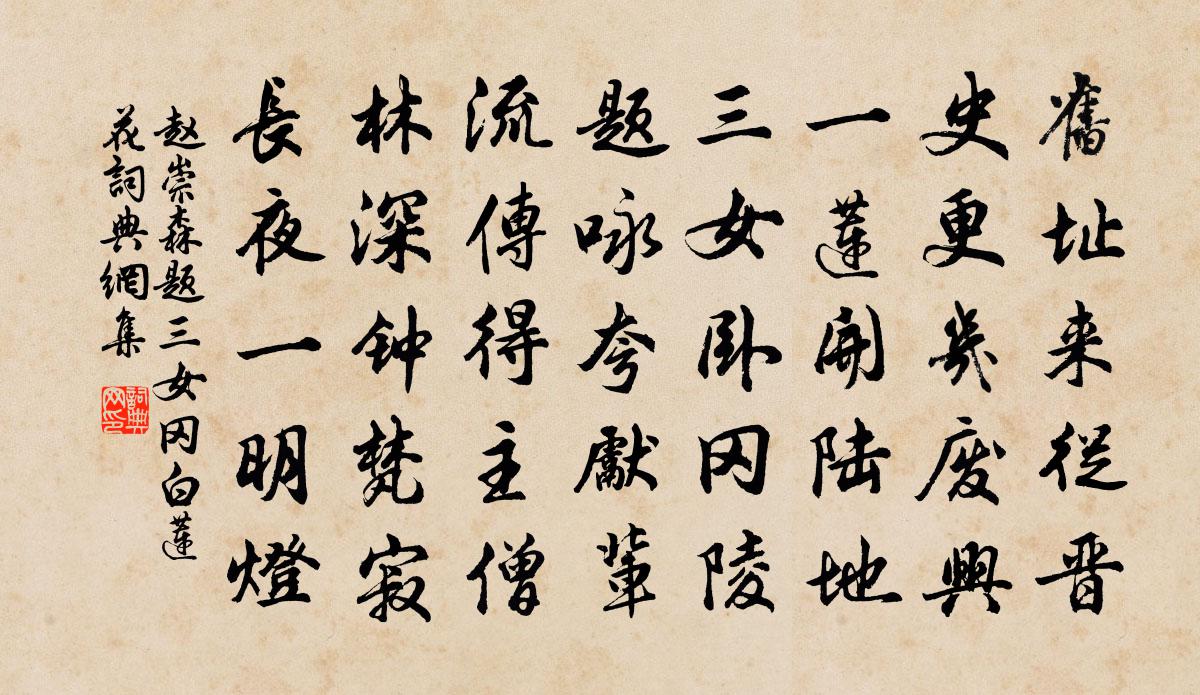 舊址来從晋
史更幾废興
一蓮開陆地
三女卧冈陵
题咏夸獻輩
流傳得主僧
林深钟梵寂
長夜一明燈
赵崇森题三女冈白蓮
花詞典網集
詞典
网印